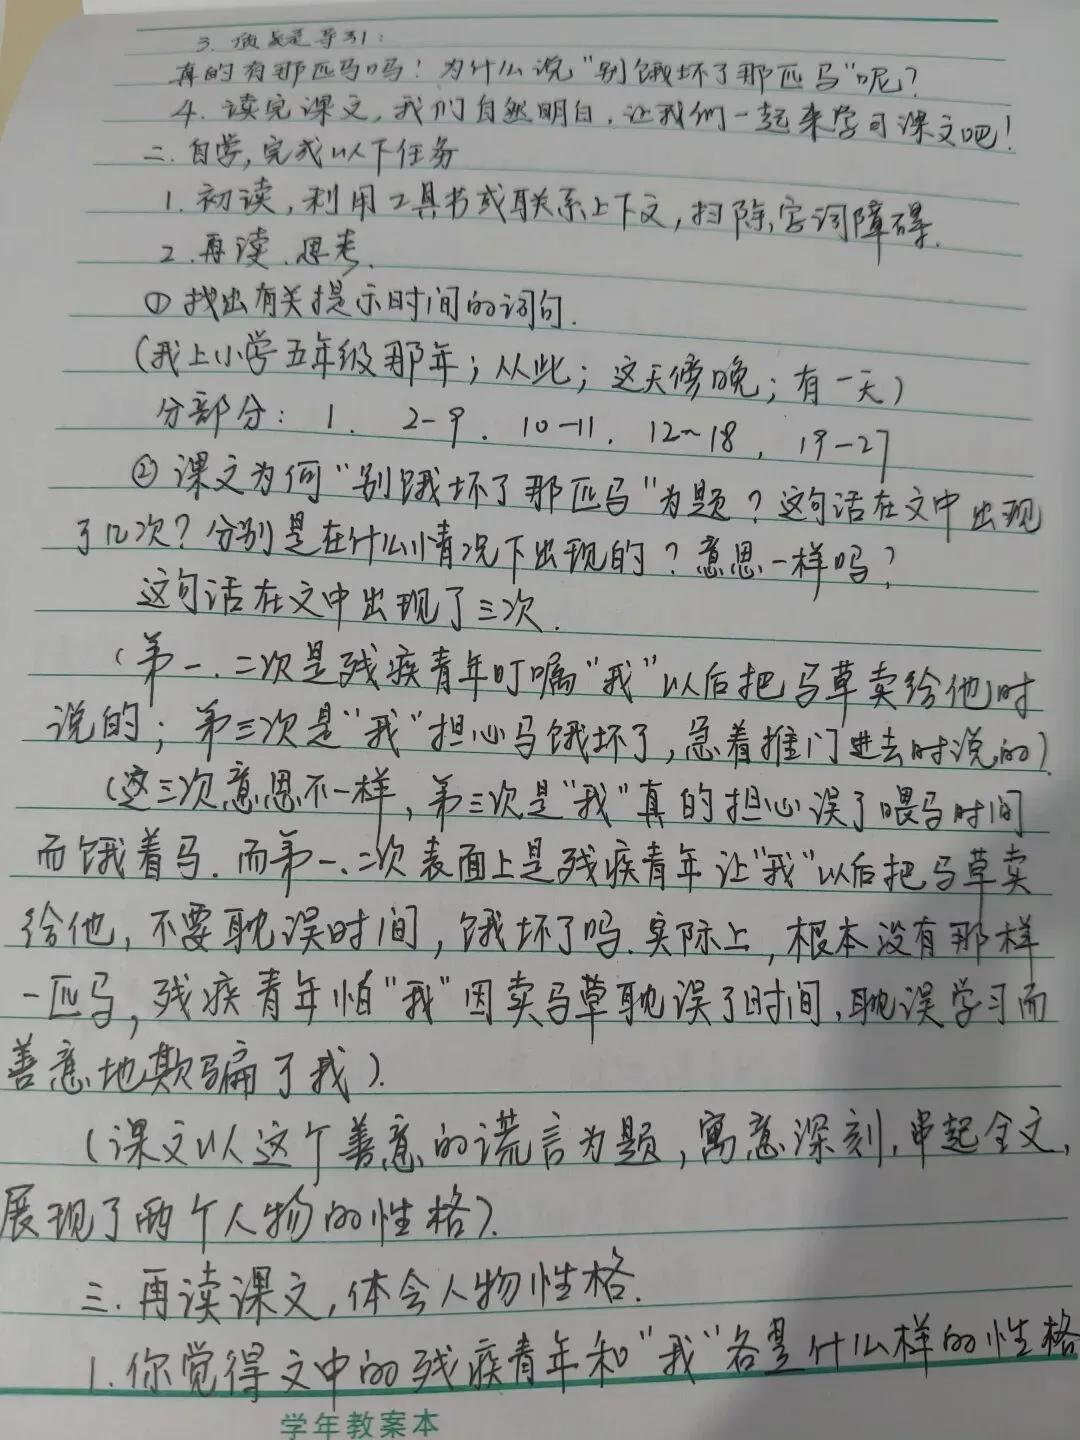 3. 质疑导引：
真的有那匹马吗！为什么说“别饿坏了那匹马”呢？
4. 读完课文，我们自然明白，让我们一起来学习课文吧！
二. 自学，完成以下任务
1. 初读，利用工具书或联系上下文，扫除字词障碍.
2. 再读、思考.
① 找出有关提示时间的词句.
（我上小学五年级那年；从此；这天傍晚；有一天）
分部分：1. 2-9. 10-11. 12~18, 19-27
② 课文为何“别饿坏了那匹马”为题？这句话在文中出现
了几次？分别是在什么情况下出现的？意思一样吗？
这句话在文中出现了三次.
（第一、二次是残疾青年叮嘱“我”以后把马草卖给他时
说的；第三次是“我”担心马饿坏了，急着推门进去时说的）
（这三次意思不一样，第三次是“我”真的担心误了喂马时间
而饿着马. 而第一、二次表面上是残疾青年让“我”以后把马草卖
给他，不要耽误时间，饿坏了吗. 实际上，根本没有那样
一匹马，残疾青年怕“我”因卖马草耽误了时间，耽误学习而
善意地欺骗了我）.
（课文以这个善意的谎言为题，寓意深刻，串起全文，
展现了两个人物的性格）.
三. 再读课文，体会人物性格.
1. 你觉得文中的残疾青年和“我”各是什么样的性格
学年教案本